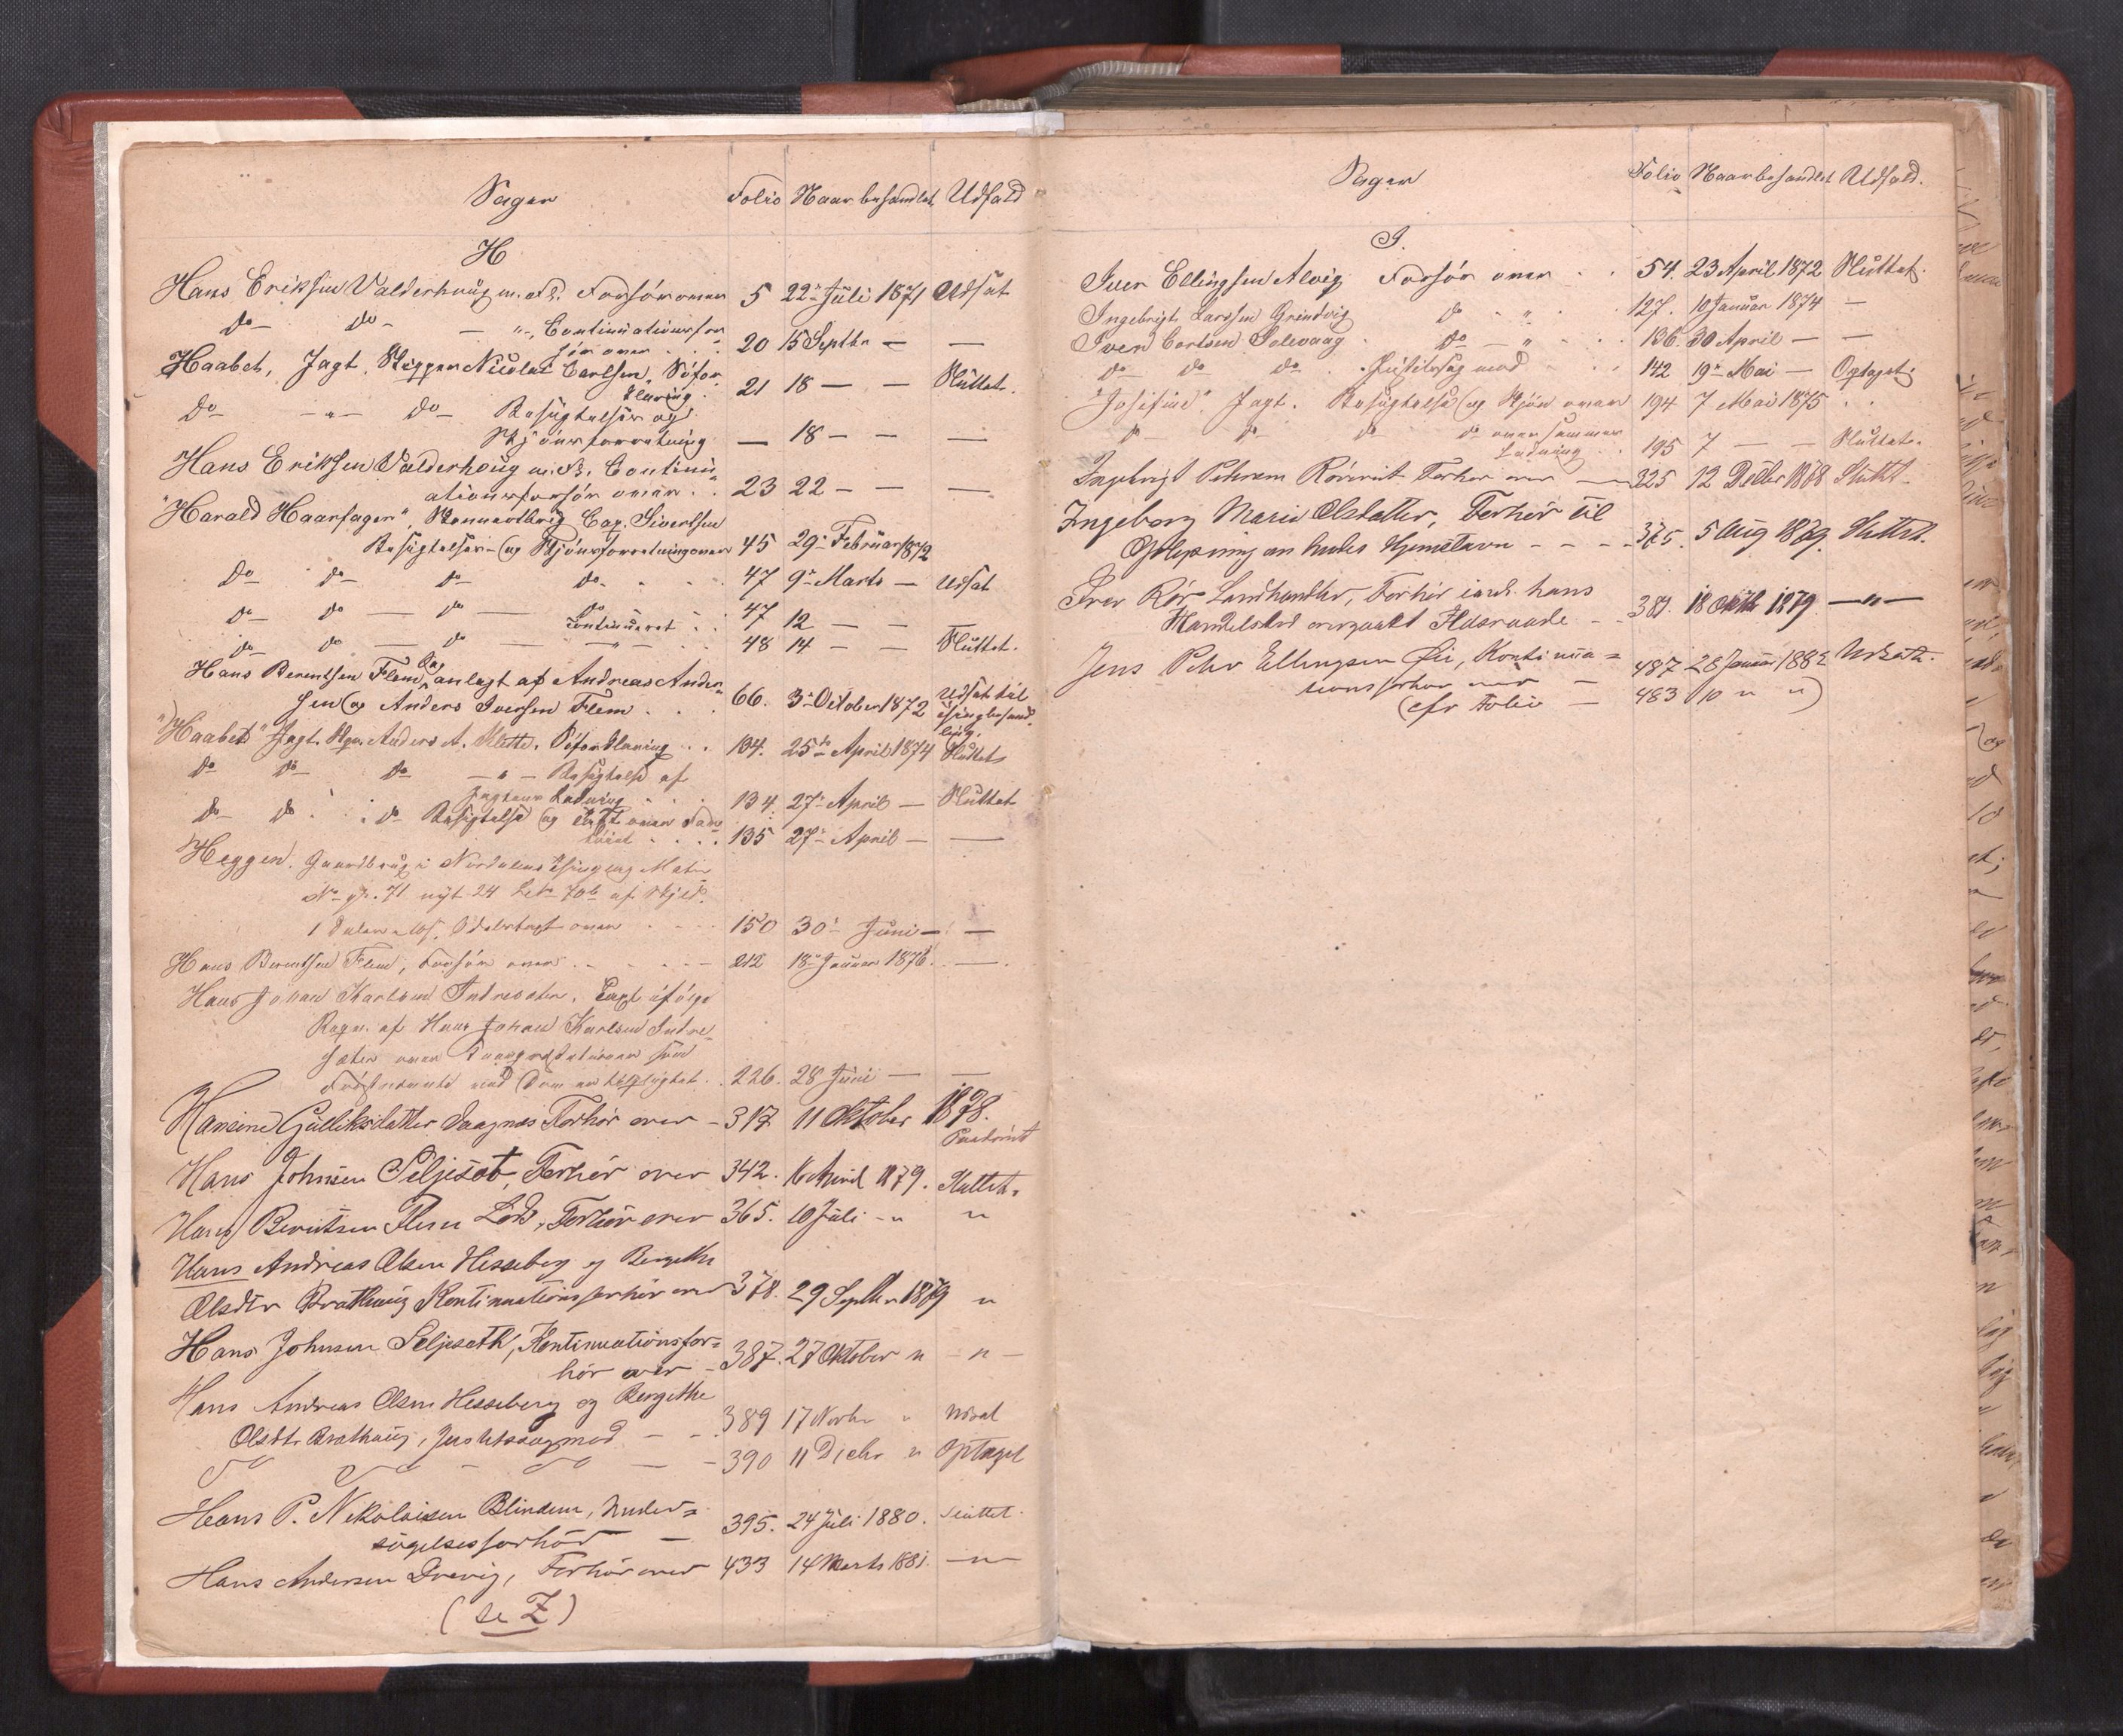 Sager Folio Naar behandlet Udfald
H
Hans Eriksen Valderhaug m. Fl. Forhør over 5 22de Juli 1871 Udsat
do do — " Continuationsfor-
hør over . . . 20 15 Septbr — —
Haabet, Jagt, Skipper Nicolai Carlsen, Søfor-
klaring . 21 18 — — Sluttet.
do — " — do Besigtelses og
Skjønsforretning — 18 — — —
Hans Eriksen Valderhoug m. Fl. Continu-
ationsforhør over . . 23 22 — — —
"Harald Haarfager", Cap. Sivertsen
Besigtelses- og Skjønsforretning over 45 29de Februar 1872
do do do do . . . 47 9de Marts — Udsat
do do — do — do
continueret . . 47 12 — — —
do do — do — " — . . 48 14 — — Sluttet.
Hans Berentsen Flem, anlagt af Andreas Ander-
sen og Anders Iversen Flem . . . 66. 3de October 1872 Udsat til
"Haabet" Jagt. Anders A. Slette. Søforklaring . . 134. 25de April 1874 Sluttet
do do do — " — Besigtelse af
Jagtens Ladning . . . 134 27de April — Sluttet
do do do Besigtelse og over
. . . . 135 27de April — —
Heggen. Gaardbrug i Nordalens Thinglag Matr
No gl. 71 nyt 24 Lbo 70b af Skjld.
1 Daler Odelstaxt over . . . 150 30de Juni — —
Hans Berentsen Flem, Forhør over . . . — 212 18de Januar 1876. —.
Hans Johan Karlsen Indresæter. Taxt ifølge
Reqv. af Hans Johan Karlsen Indre-
sæter over
. . 226. 28 Juni — —
Hansine Gulliksdatter Forhør over — 317 11 Oktober 1878.
Hans Johnsen Seljesæt, Forhør over 342. 16 April 1879. Sluttet.
Hans Berentsen Flem Lods, Forhør over 365. 10 Juli — " "
Hans Andreas Olsen Hesseberg og Bergethe
Olsdtr Brathaug Kontinuationsforhør over 378. 29 Septbr 1879 "
Hans Johnsen Seljesæth, Kontinuationsfor-
hør over — 387. 27 Oktober " — " —
Hans Andreas Olsen Hesseberg og Bergethe
Olsdtr Brathaug, Justitssag mod — — 389 17 Novbr " Udsat
do do — do — — 390 11 Decbr " Optaget
Hans P. Nikolaisen Blindem, Under-
søgelsesforhør — 395. 24 Juli 1880. Sluttet.
Hans Andersen Drevig, Forhør over 433 14 Marts 1881. — " —
(se Z)
Sager Folio Naar behandlet Udfald.
I.
Iver Ellingsen Alvig Forhør over . . 54. 23 April 1872 Sluttet.
Ingebrigt Larssen Grindvig do . " . . 127. 10 Januar 1874 —
Iver Carlsen Solevaag . do — " . . . 136. 30 April — —
do do do . Justitssag mod . . 142 19de Mai — Optaget.
"Josefine". Jagt. Besigtelse og Skjøn over 194 7 Mai 1875 . .
do do do do over sammes
Ladning . . 195 7 — — Sluttet.
Ingebrigt Pehrsen Forhør over — 325 12 Decbr 1878 Sluttet.
Ingeborg Marie Olsdatter, Forhør til
Oplysning om hendes Hjemstavn — — — 375. 5 Aug 1879. Sluttet.
Iver Rør Landhandler, Forhør i anl. hans
Handelsbod overgaaet Ildsvaade — — 384. 18 Oktbr 1879. — " —
Jens Pehr Ellingsen Øie, Kontinua-
tionsforhør over — 487 28 Januar 1882 Udsat.
(cfr Folio — 483 10 " ")